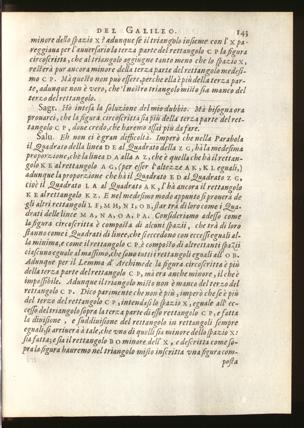 DEL GALILEO. 143
minore dello spazio X? adunque se il triangolo insieme con l'X pa-
reggiana per l'auuersario la terza parte del rettangolo CP la figura
circoscritta, che al triangolo aggiugne tanto meno che lo spazio X,
resterà pur ancora minore della terza parte del rettangolo medesi-
mo CP. Mà questo non può essere, perche ella è più della terza par-
te, adunque non è vero, che l'nostro triangolo misto sia manco del
terzo del rettangolo.
Sagr. Hò intesa la soluzione del mio dubbio. Mà bisogna ora
prouarci, che la figura circoscritta sia più della terza parte del ret-
tangolo CP, doue credo, che haremo assai più da fare.
Salu. Eh non ci è gran difficoltà. Imperò che nella Parabola
il Quadrato della linea DE al Quadrato della ZG, hà la medesima
proporzione, chè la linea DA alla AZ, che è quella che hà il rettan-
golo KE al rettangolo AG, (per esser l'altezze AK, KL eguali,)
adunque la proporzione che hà il Quadrato ED al Quadrato ZG,
cioè il Quadrato LA al Quadrato AK, l'hà ancora il rettangolo
KE al rettangolo KZ. E nel medesimo modo appunto si prouera de
gli altri rettangoli LF, MH, NI, OB, star trà di loro come i Qua-
drati delle linee MA, NA, OA, PA. Consideriamo adesso come
la figura circoscritta è composta di alcuni spazii, che trà di loro
stanno come i Quadrati di linee, che si eccedono con eccessi eguali al-
la minima, e come il rettangolo CP è composto di altrettanti spazii
ciascuno eguale al massimo, che sono tutti i rettangoli eguali all' OB.
Adunque per il Lemma d'Archimede la figura circoscritta è più
della terza parte del rettangolo CP, mà era anche minore, il che è
impossibile. Adunque il triangolo misto non è manco del terzo del
rettangolo CP. Dico parimente che non è più, imperò che se è più
del terzo del rettangolo CP, intendasi lo spazio X, eguale all' ec-
cesso del triangolo sopra la terza parte di esso rettangolo CP, e fatta
la diuisione, e suddiuisione del rettangolo in rettangoli sempre
eguali, si arriuerà à tale, che vno di quelli sia minore dello spazio X:
sia fatta; e sia il rettangolo BO minore dell' X, e descritta come so-
pra la figura hauremo nel triangolo misto inscritta vna figura com-
posta